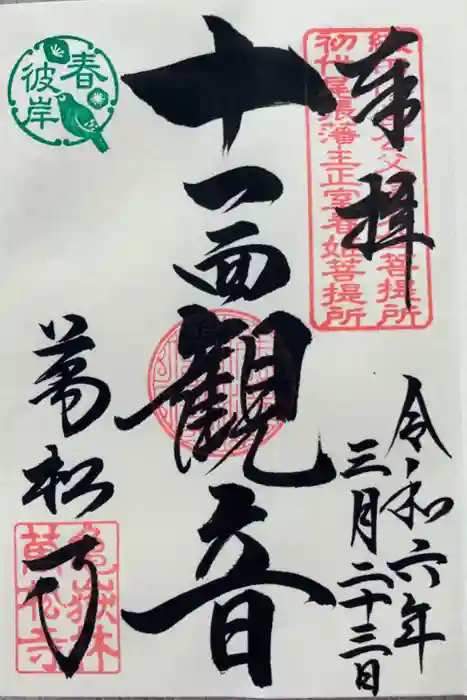 奉拝
初代尾張藩主正室春姫菩提所
十一面観音
令和六年
三月二十三日
春彼岸
萬松寺
亀嶽林
萬松寺